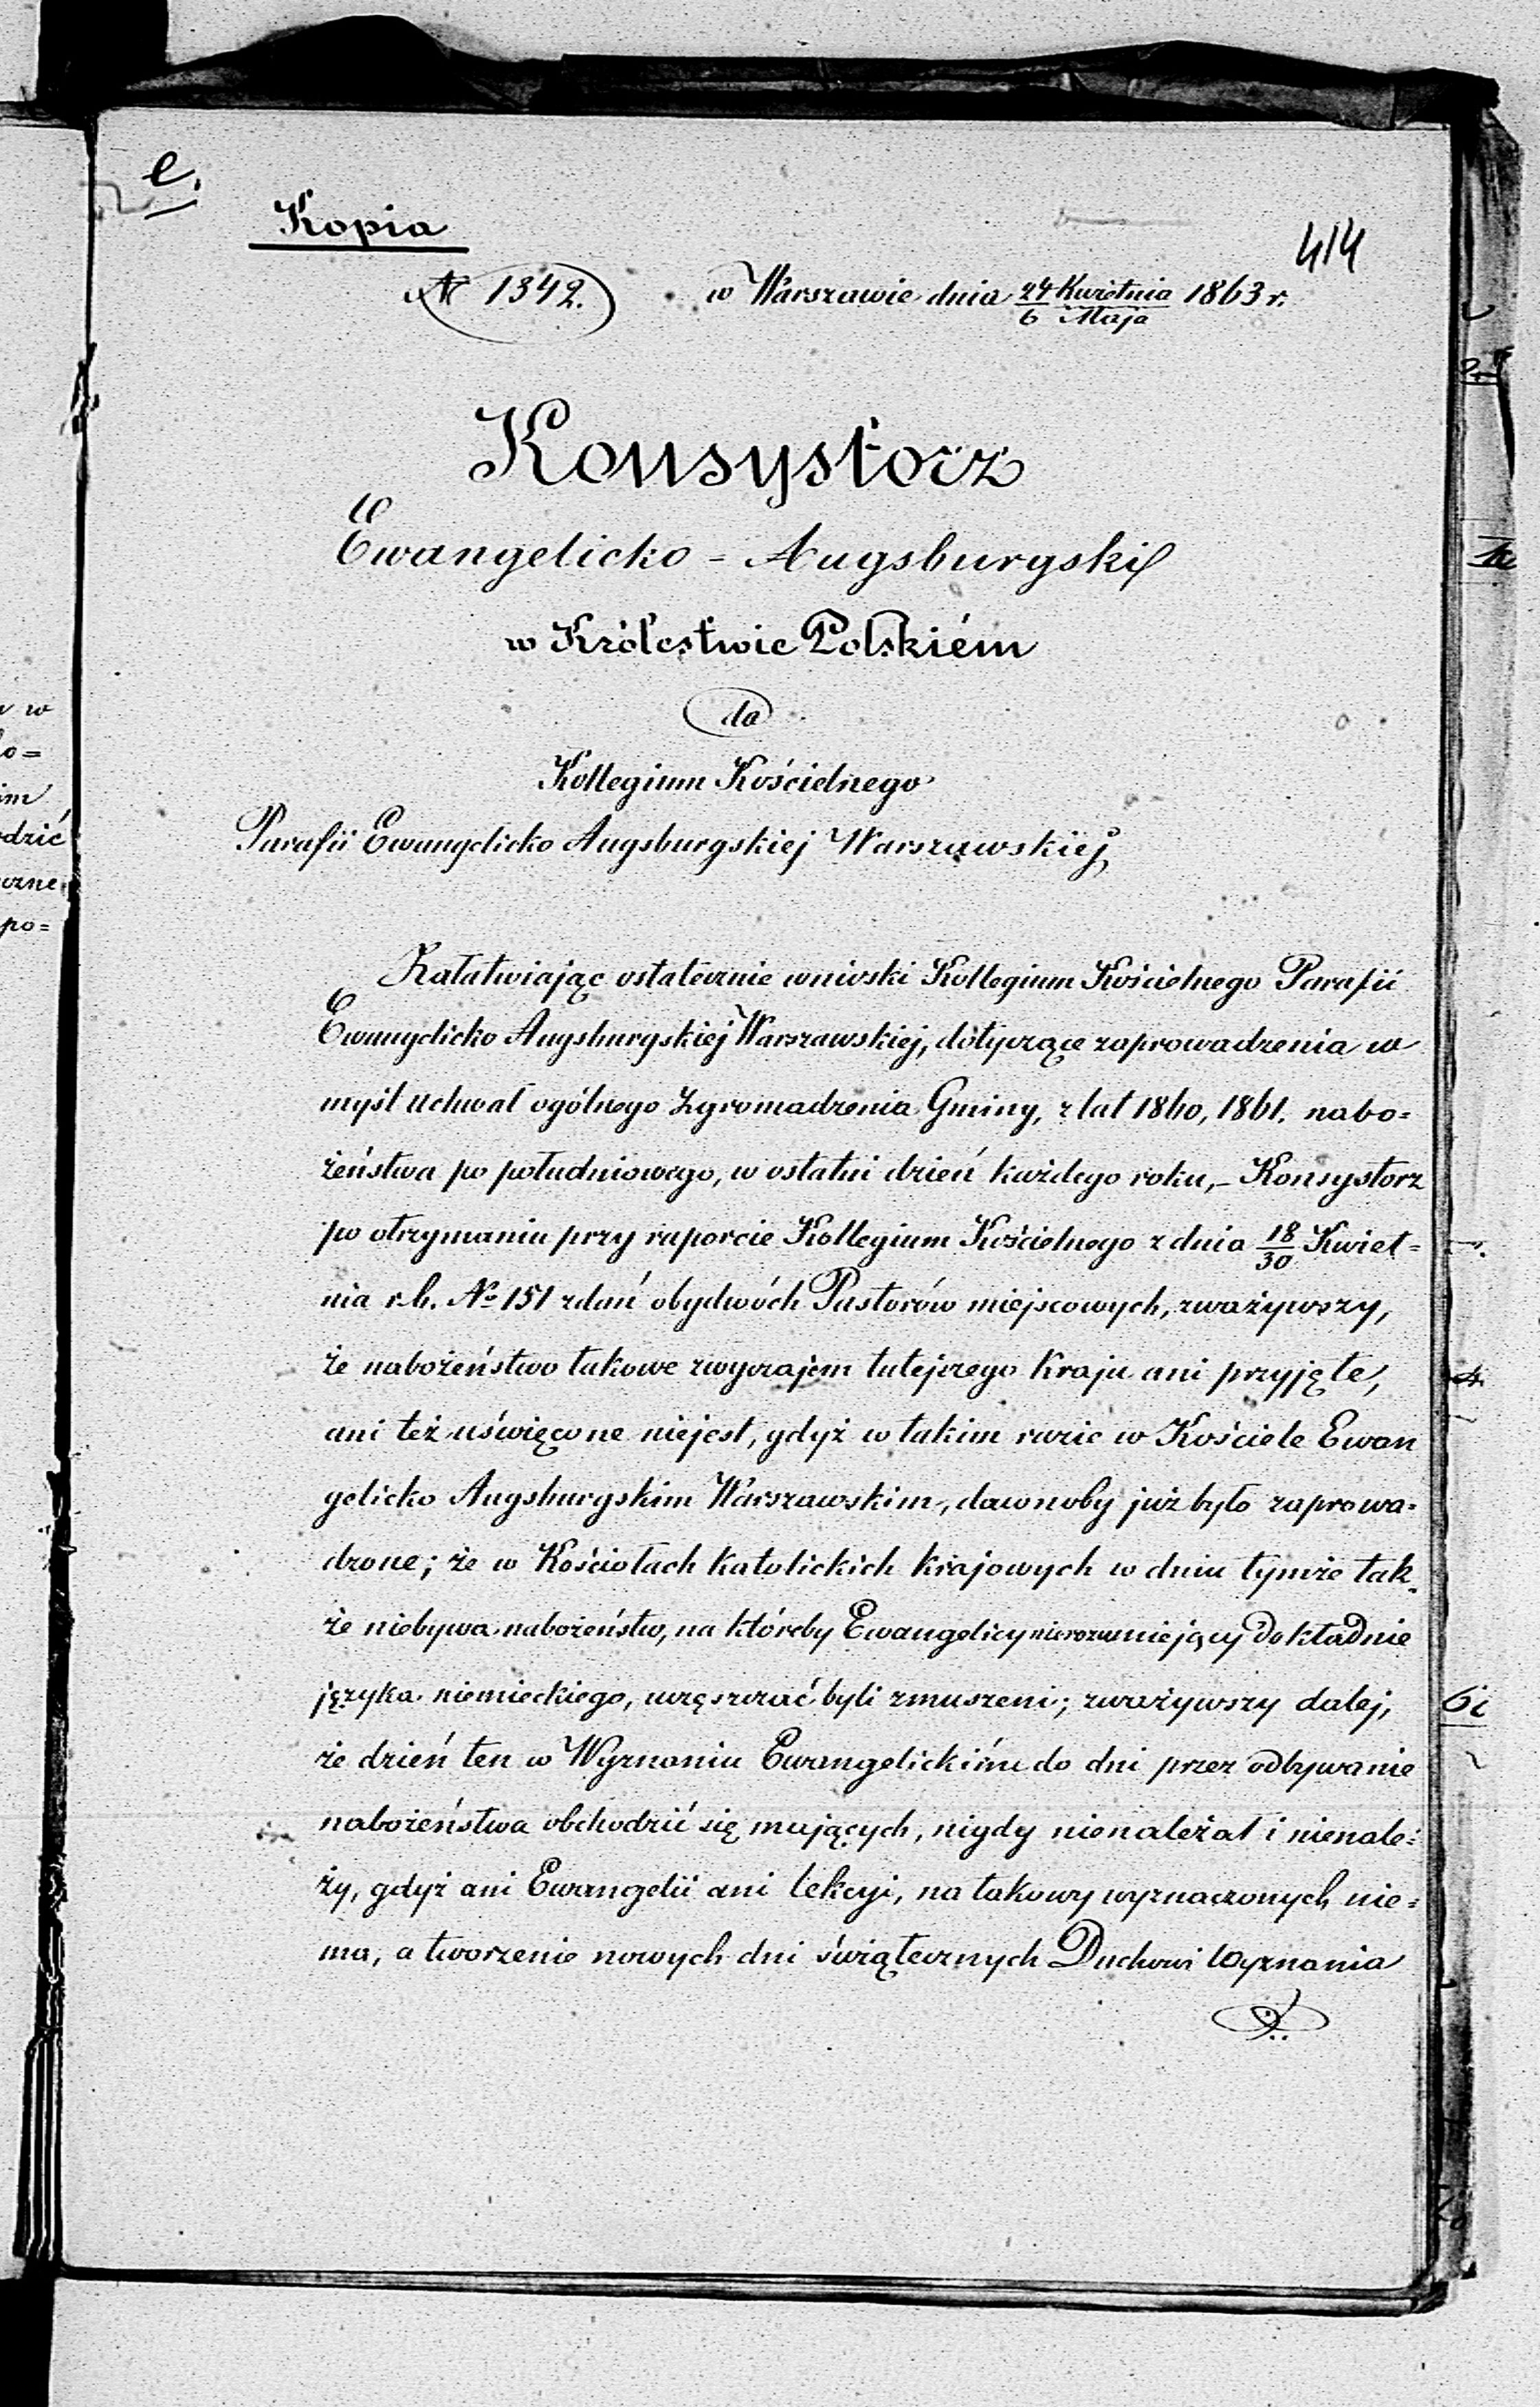 e.
Kopia
414
№ 1342. w Warszawie dnia 24 Kwietnia / 6 Maja 1863 r.
Konsystorz
Ewangelicko-Augsburgski
w Królestwie Polskiém
do
Kollegium Kościelnego
Parafii Ewangelicko Augsburgskiej Warszawskiej
Załatwiając ostatecznie wnioski Kollegium Kościelnego Parafii
Ewangelicko Augsburgskiej Warszawskiej, dotyczące zaprowadzenia w
myśl uchwał ogólnego Zgromadzenia Gminy, z lat 1860, 1861. nabo=
żeństwa po południowego, w ostatni dzień każdego roku,- Konsystorz
po otrzymaniu przy raporcie Kollegium Kościelnego z dnia 18/30 Kwiet=
nia r.b. № 151 zdań obydwóch Pastorów miejscowych, zważywszy,
że nabożeństwo takowe zwyczajem tutejszego Kraju ani przyjęte,
ani też uświęcone niejest, gdyż w takim razie w Kościele Ewan
gelicko Augsburgskim Warszawskim, dawnoby już było zaprowa=
dzone; że w Kościołach Katolickich Krajowych w dniu tymże tak=
że niebywa nabożeństw, na któreby Ewangelicy nierozumiejący dokładnie
języka niemieckiego, uczęszczać byli zmuszeni; zważywszy dalej,
że dzień ten w Wyznaniu Ewangelickiém do dni przez odbywanie
nabożeństwa obchodzić się mających, nigdy nienależał i nienale=
ży, gdyż ani Ewangelii ani lekcyi, na takowy wyznaczonych nie=
ma, a tworzenie nowych dni świątecznych Duchowi Wyznania
w
o=
im
odzić
czne
po=